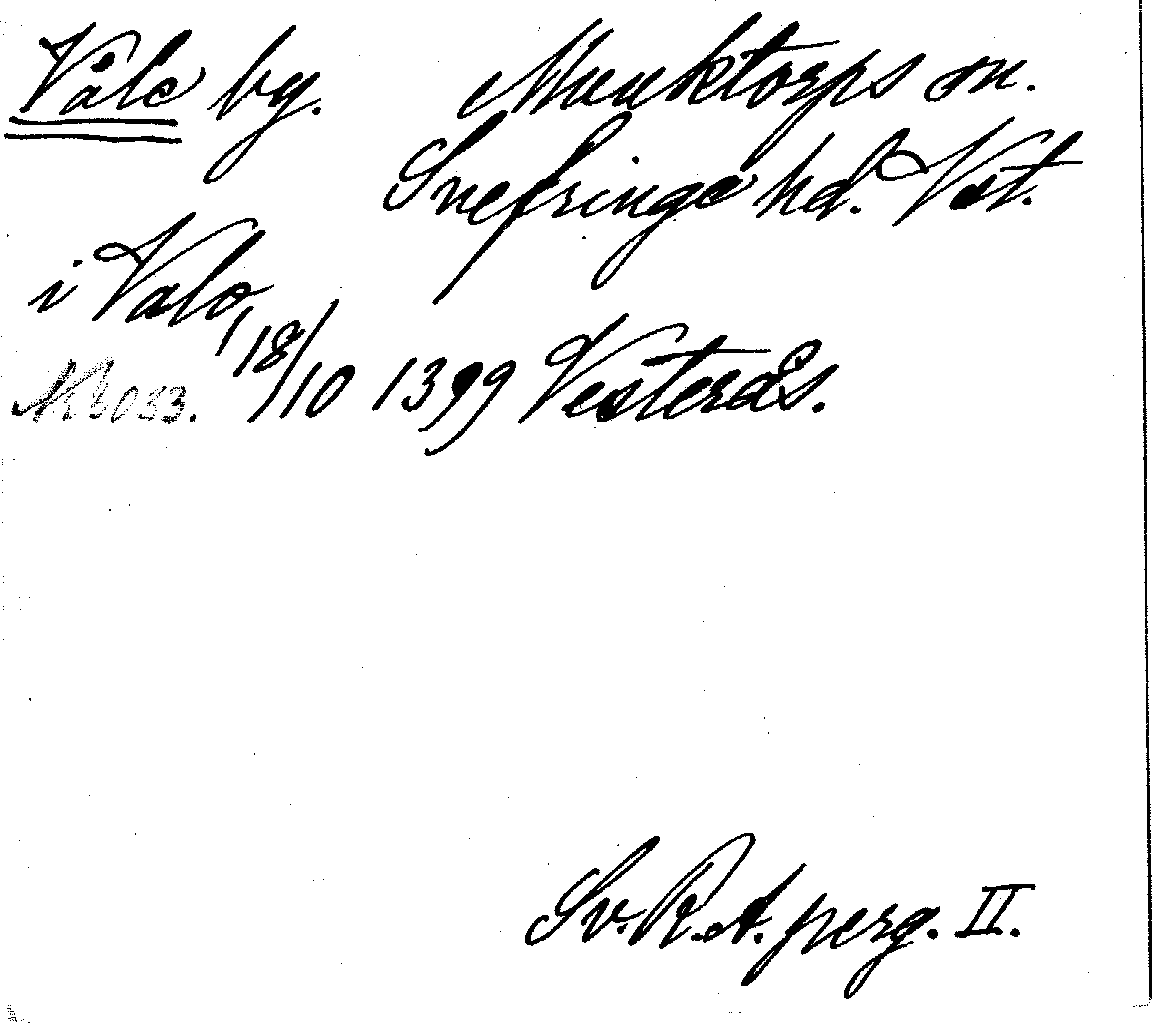 Våle by. Munktorps sn.
Snefringe hd. Vst.
i Valo,
18/10 1399 Vesterås.
N:o 033.
Sv. R. A. perg. II.